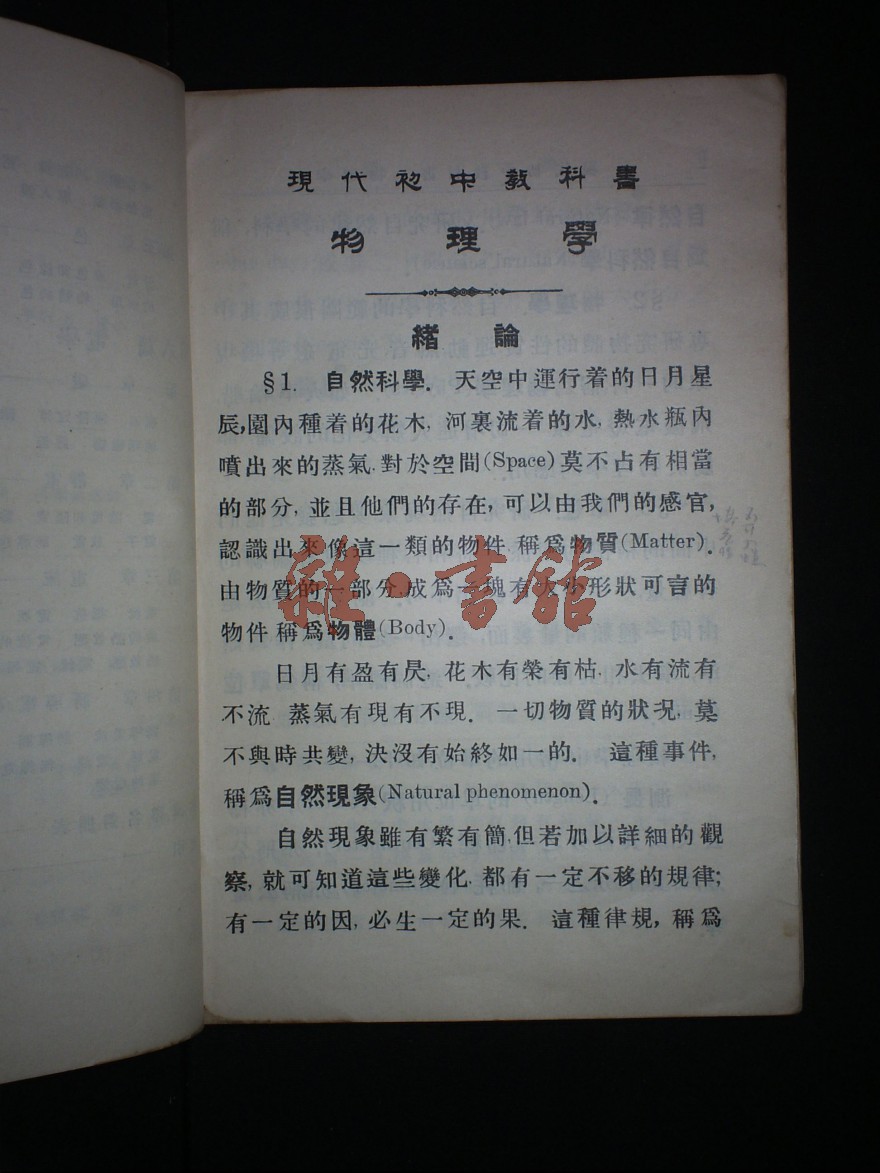 現代初中教科書
物理學
緒論
§1. 自然科學. 天空中運行着的日月星
辰,園內種着的花木, 河裏流着的水, 熱水瓶內
噴出來的蒸氣, 對於空間(Space)莫不占有相當
的部分, 並且他們的存在, 可以由我們的感官,
認識出來像這一類的物件, 稱爲物質(Matter).
由物質的一部分,成爲一塊有大小形狀可言的
物件稱爲物體(Body).
日月有盈有昃, 花木有榮有枯, 水有流有
不流, 蒸氣有現有不現. 一切物質的狀況, 莫
不與時共變, 決沒有始終如一的. 這種事件,
稱爲自然現象(Natural phenomenon).
自然現象雖有繁有簡,但若加以詳細的觀
察, 就可知道這些變化, 都有一定不移的規律;
有一定的因, 必生一定的果. 這種律規, 稱爲
雜·書館